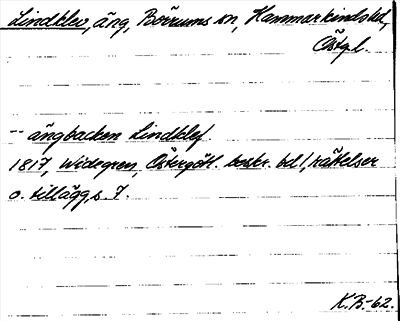 Lindklev, äng, Börrums sn, Hammarkinds hd,
Östgl.
-- ängbacken Lindklef
1817, Widegren, Östergötl. beskr. bd 1, rättelser
o. tillägg, s. 7.
K.B.-62.